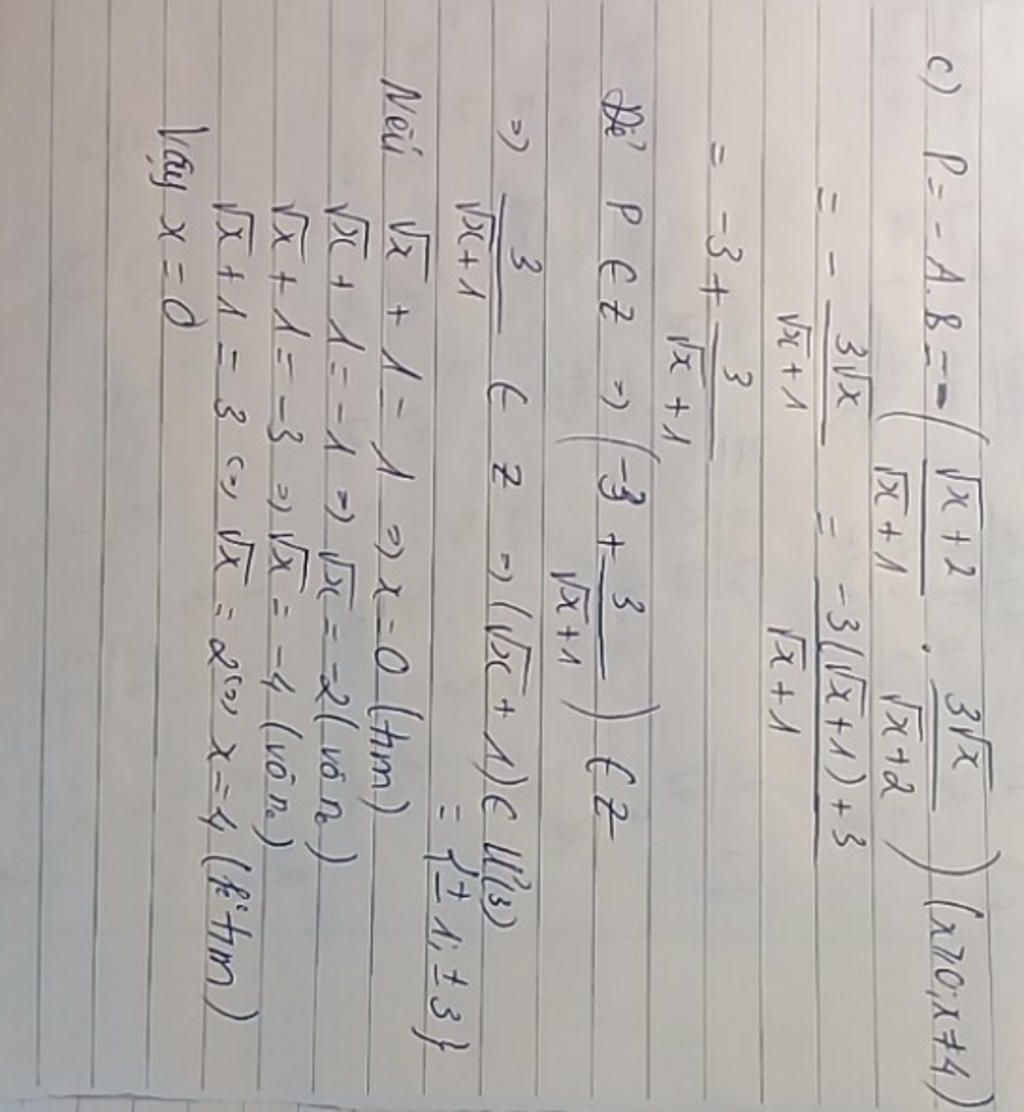 c) P = - A.B = - ( (√x + 2)/(√x + 1) . 3√x/(√x + 2) ) (x ≥ 0; x ≠ 4)
= - 3√x/(√x + 1) = (-3(√x + 1) + 3)/(√x + 1)
= -3 + 3/(√x + 1)
Để P ∈ Z => ( -3 + 3/(√x + 1) ) ∈ Z
=> 3/(√x + 1) ∈ Z => (√x + 1) ∈ Ư(3)
= {± 1; ± 3}
Nếu √x + 1 = 1 => x = 0 (tm)
√x + 1 = -1 => √x = -2 (vô no)
√x + 1 = -3 => √x = -4 (vô no)
√x + 1 = 3 <=> √x = 2 <=> x = 4 (k tm)
Vậy x = 0